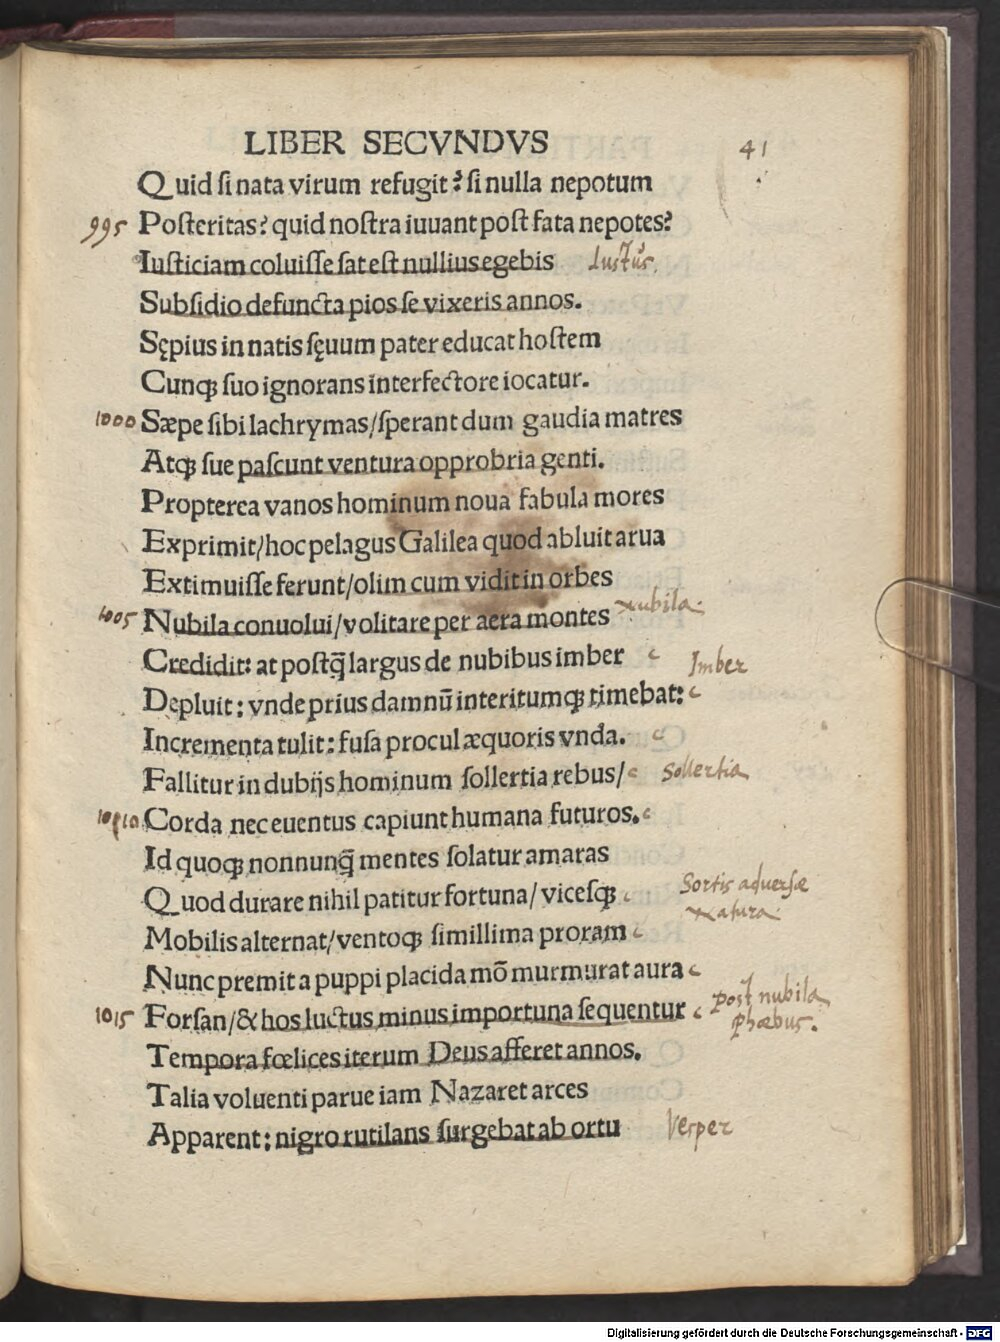 LIBER SECVNDVS 41
Quid si nata virum refugit? si nulla nepotum
995 Posteritas? quid nostra iuuant post fata nepotes?
Iusticiam coluisse sat est nullius egebis Iustus.
Subsidio defuncta pios se vixeris annos.
Sępius in natis sęuum pater educat hostem
Cunqꝫ suo ignorans interfectore iocatur.
1000 Sæpe sibi lachrymas/sperant dum gaudia matres
Atqꝫ sue pascunt ventura opprobria genti.
Propterea vanos hominum noua fabula mores
Exprimit/hoc pelagus Galilea quod abluit arua
Extimuisse ferunt/olim cum vidit in orbes
1005 Nubila conuolui/volitare per aera montes Nubila
Credidit: at postq̄ largus de nubibus imber Imber
Depluit: vnde prius damnū interitumqꝫ timebat:
Incrementa tulit: fusa procul æquoris vnda.
Fallitur in dubijs hominum sollertia rebus/ Sollertia
1010 Corda nec euentus capiunt humana futuros.
Id quoqꝫ nonnunq̄ mentes solatur amaras
Quod durare nihil patitur fortuna/ vicesqꝫ Sortis aduersæ
Natura
Mobilis alternat/ventoqꝫ simillima proram
Nunc premit a puppi placida mō murmurat aura
1015 Forsan/& hos luctus minus importuna sequentur post nubila
phæbus.
Tempora fœlices iterum Deus afferet annos.
Talia voluenti parue iam Nazaret arces
Apparent: nigro rutilans surgebat ab ortu Vesper
Digitalisierung gefördert durch die Deutsche Forschungsgemeinschaft - DFG